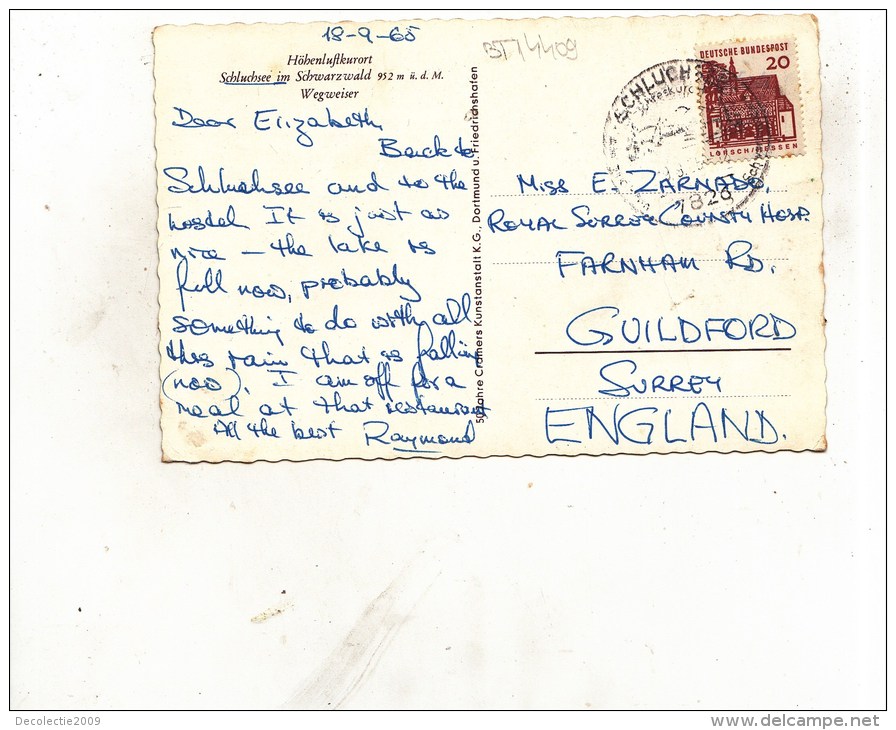 18-9-65
BT14409
Höhenluftkurort
Schluchsee im Schwarzwald 952 m ü. d. M.
Wegweiser
Dear Elizabeth,
Back to
Schluchsee and to the
hostel. It is just as
nice – the lake is
full now, probably
something to do with all
this rain that is falling
(now). I am off for a
meal at that restaurant
All the best Raymond
50 Jahre Cramers Kunstanstalt K.G., Dortmund u. Friedrichshafen
DEUTSCHE BUNDESPOST
20
LORSCH/HESSEN
SCHLUCHSEE
7826
MISS E. ZARNADO,
ROYAL SURREY COUNTY HOSP.
FARNHAM RD.
GUILDFORD
SURREY
ENGLAND.
Decolectie2009
www.delcampe.net